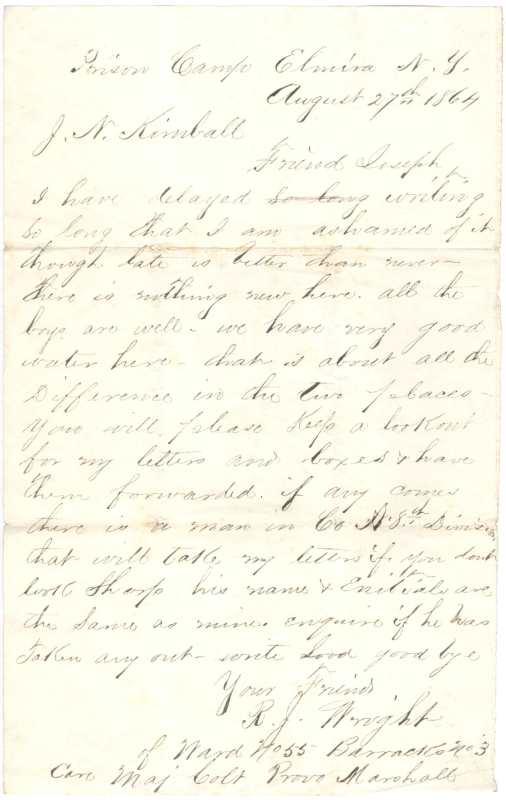 Prison Camp Elmira N. Y.
August 27th 1864
J. N. Kimball
Friend Joseph
I have delayed so long writing
so long that I am ashamed of it
though late is better than never—
there is nothing new here. all the
boys are well — we have very good
water here — that is about all the
Difference in the two places —
you will, please Keep a lookout
for my letters and boxes & have
them forwarded. if any comes
there is a man in Co Division
that will take my letters if you dont
look Sharp his name & Enitials are
the Same as mine. enquire if he has
taken any out — write good bye
Your Friend
R. J. Wright
of Ward No 55 Barracks No 3
Care Maj Colt Provo Marshall